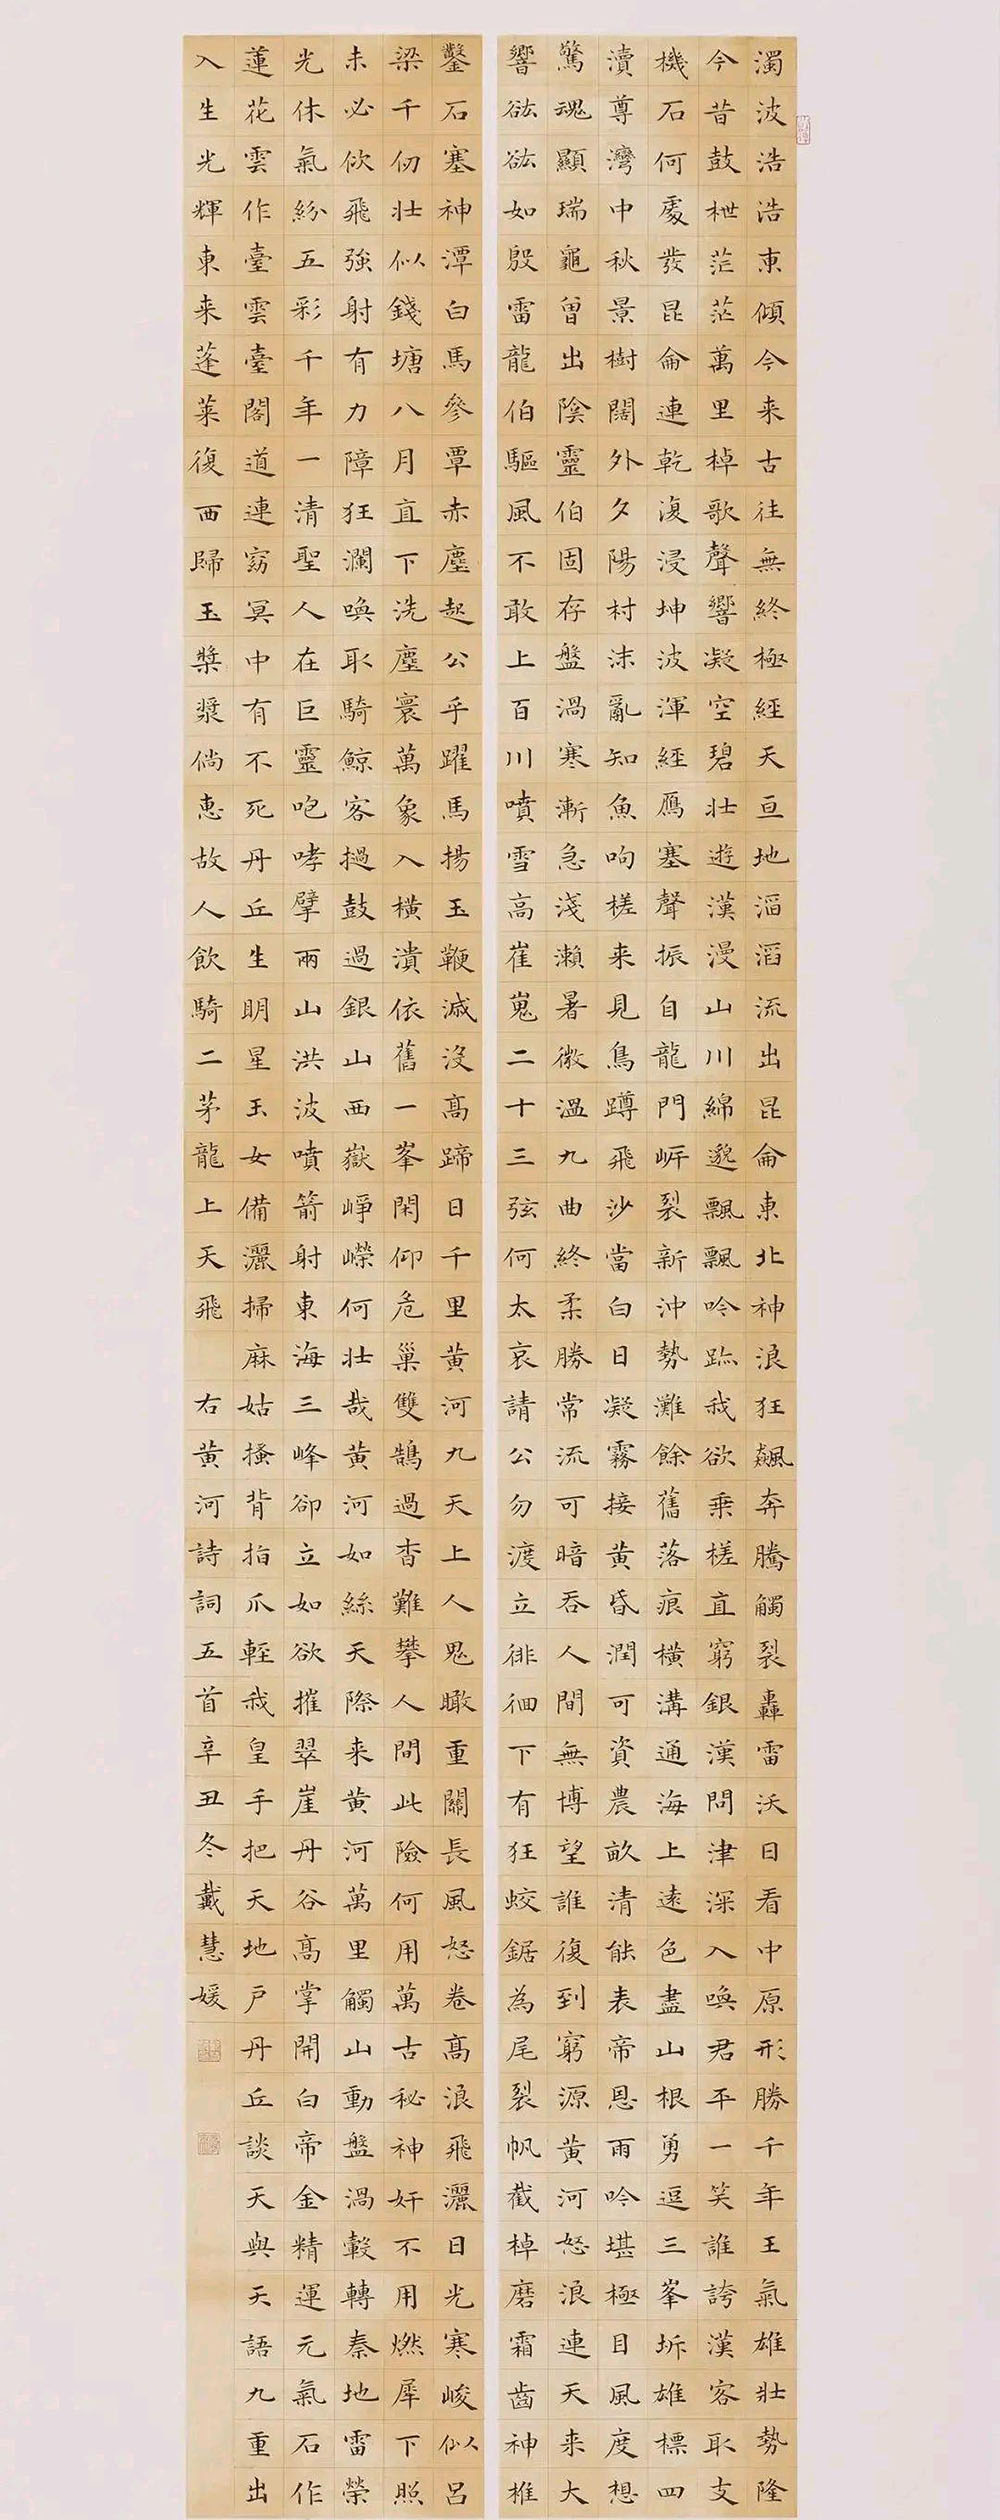 濁波浩浩東傾今来古往無終極經天亘地滔滔流出昆侖東北神浪狂飆奔騰觸裂轟雷沃日看中原形勝千年王氣雄壯勢隆
今昔鼓枻茫茫萬里棹歌聲響凝空碧壯遊漢漫山川綿邈飄飄吟跡我欲乗槎直窮銀漢問津深入喚君平一笑誰誇漢客取支
機石何處發昆侖連乾復浸坤波渾經鴈塞聲振自龍門岸裂新沖勢灘餘舊落痕橫溝通海上遠色盡山根勇逗三峯坼雄標四
瀆尊灣中秋景樹闊外夕陽村沫亂知魚呴槎来見鳥蹲飛沙當白日凝霧接黃昏潤可資農畝清能表帝恩雨吟堪極目風度想
驚魂顯瑞龜曾出陰靈伯固存盤渦寒漸急淺瀨暑微溫九曲終柔勝常流可暗吞人間無博望誰復到窮源黃河怒浪連天来大
響谹谹如殷雷龍伯驅風不敢上百川噴雪高崔嵬二十三弦何太哀請公勿渡立徘徊下有狂蛟鋸為尾裂帆截棹磨霜齒神椎
鑿石塞神潭白馬參覃赤塵起公乎躍馬揚玉鞭滅沒高蹄日千里黃河九天上人鬼瞰重關長風怒卷高浪飛灑日光寒峻似呂
梁千仞壯似錢塘八月直下洗塵寰萬象入橫潰依舊一峯閑仰危巢雙鵠過杳難攀人間此險何用萬古秘神奸不用燃犀下照
未必佽飛強射有力障狂瀾喚取騎鯨客撾鼓過銀山西嶽崢嶸何壯哉黃河如絲天際来黃河萬里觸山動盤渦轂轉秦地雷榮
光休氣紛五彩千年一清聖人在巨靈咆哮擘兩山洪波噴箭射東海三峰卻立如欲摧翠崖丹谷高掌開白帝金精運元氣石作
蓮花雲作臺雲臺閣道連窈冥中有不死丹丘生明星玉女備灑掃麻姑搔背指爪輕我皇手把天地戶丹丘談天與天語九重出
入生光輝東来蓬萊復西歸玉槳漿倘惠故人飲騎二茅龍上天飛 右黃河詩詞五首辛丑冬戴慧媛